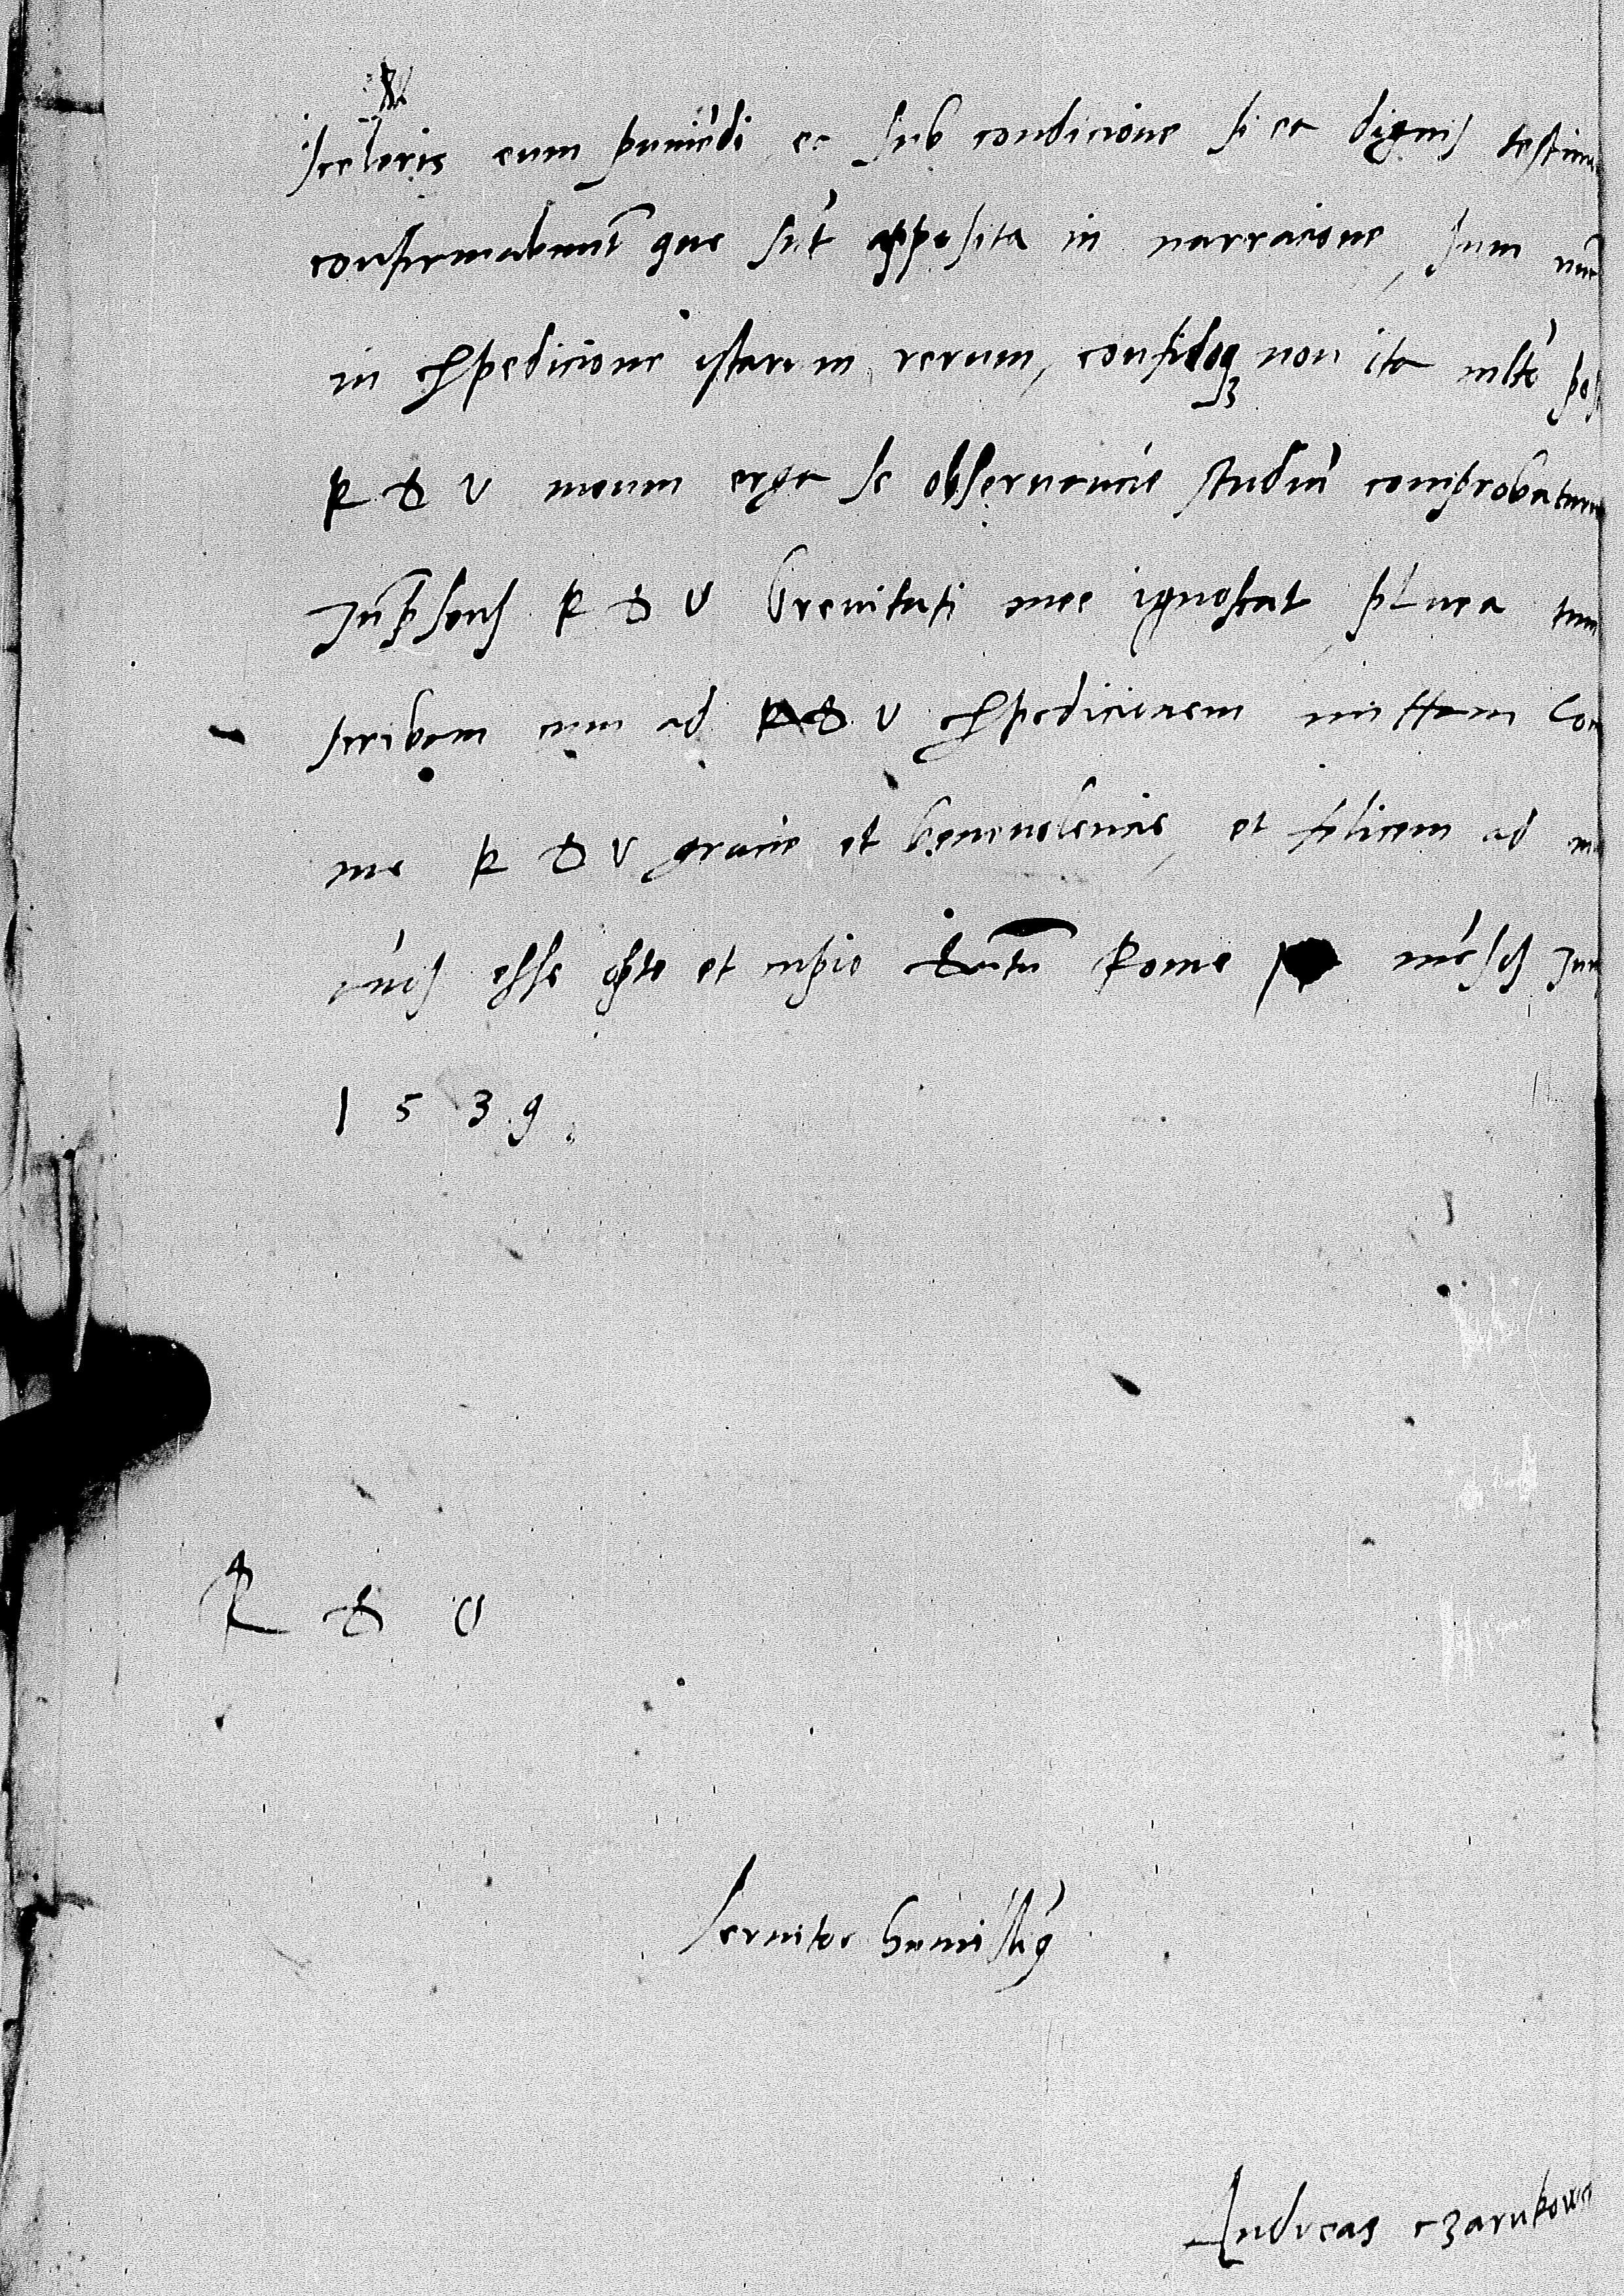 sceleris eum puniēdi ea sub condicione si ea dignis testimo
confirmabunt que sūt apposita in narracione, sum nūc
in expedicione istarum rerum, confidoq3 non ita mlto pos
R D V meum erga se observancie studiū comprobatur
In p̄sens R D V brevitati mee ignoscat plura tum
scribam cum ad R D V expedicionem mittam Com
me R D V gracie et benevolencie, et felicem ad m
esse opto et cupio Datū Rome mēsis Jun
1 5 3 9.
R D V
servitor humillig
Andreas czarnkows